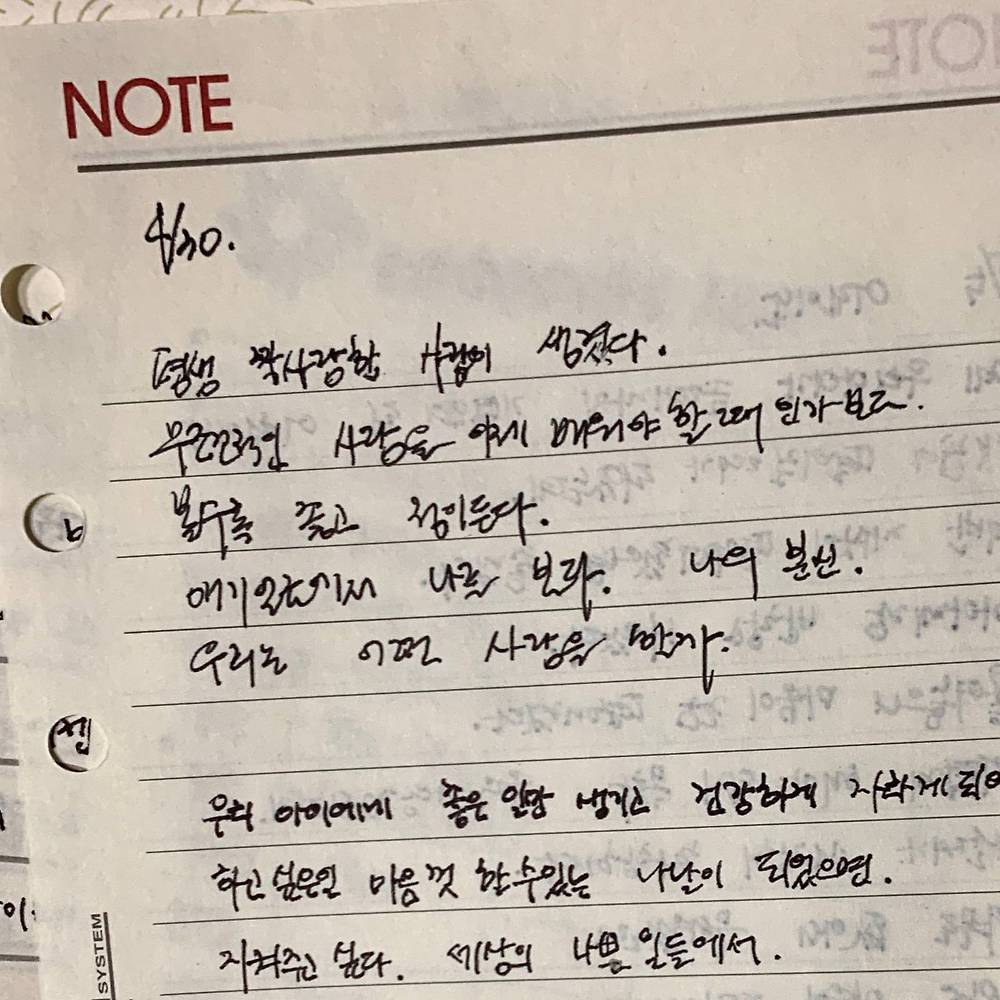 NOTE
4/30.
평생 짝사랑할 사람이 생겼다.
무조건적인 사랑을 이제 배워야 할 때 인가보다.
볼수록 좋고 정이든다.
애기한테서 나를 보다. 나의 분신.
우리는 어떤 사랑을 할까.
우리 아이에게 좋은 일만 생기고 건강하게 자라게 되어
하고 싶은일 마음껏 할 수 있는 나날이 되었으면.
지켜주고 싶다. 세상의 나쁜 일들에서.
SYSTEM